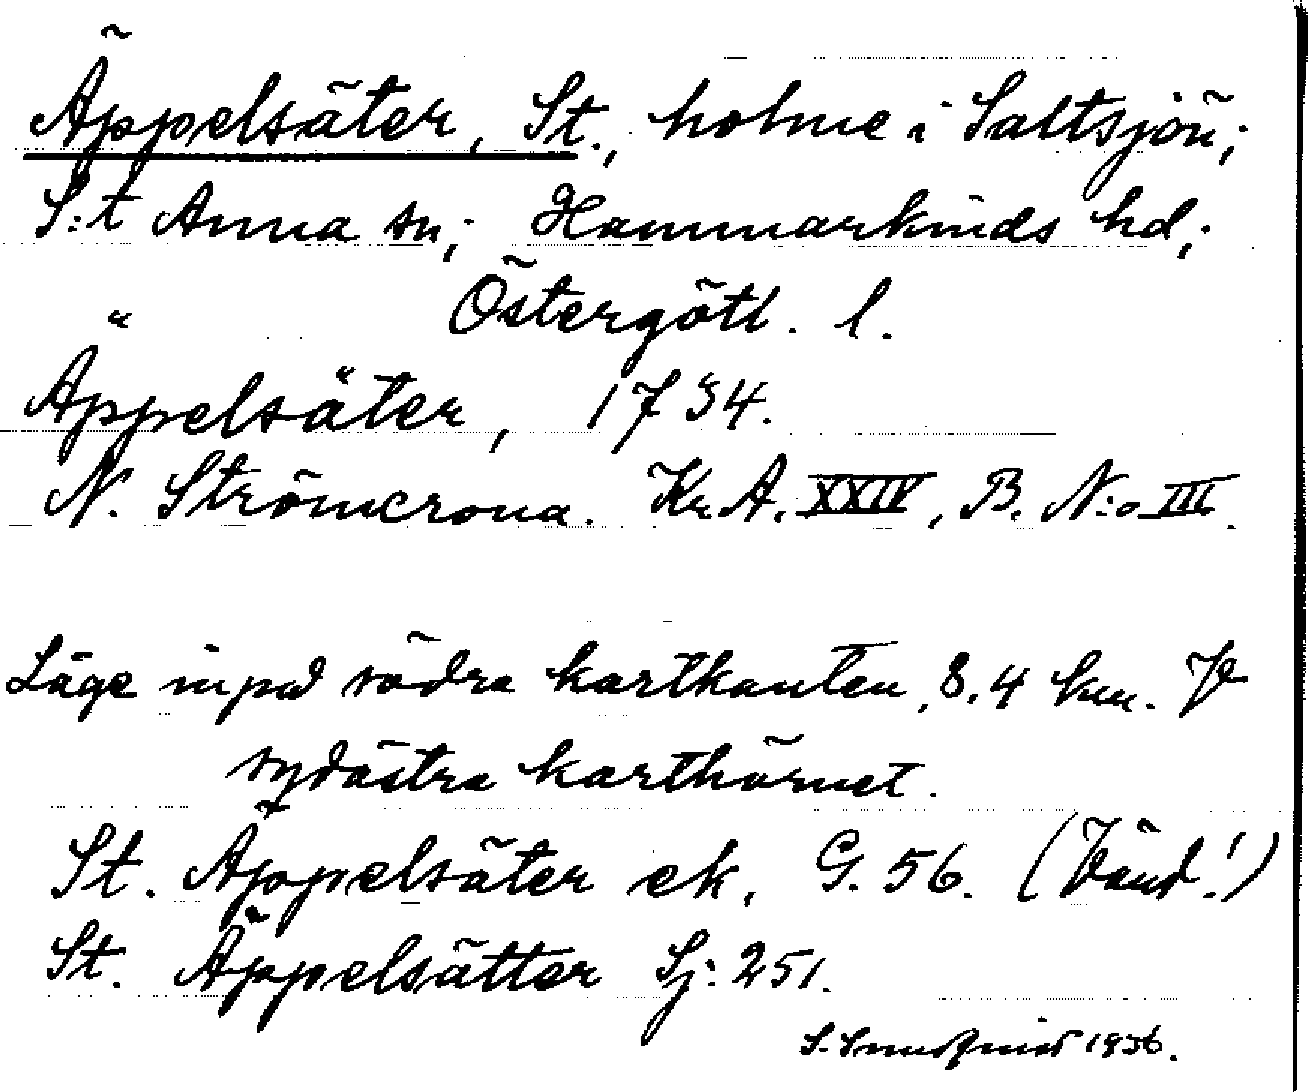 Äppelsäter, St., holme i Saltsjön;
S:t Anna sn; Hammarkinds hd;
Östergötl. l.
Äppelsäter, 1734.
N. Strömcrona. Kr. A. XXIV, B. N:o III.
Läge inpå södra kartkanten, 8.4 km. fr
sydöstra karthörnet.
St. Äppelsäter ek. G. 56. (Vänd!)
St. Äppelsätter Sj: 251.
S. 1936.